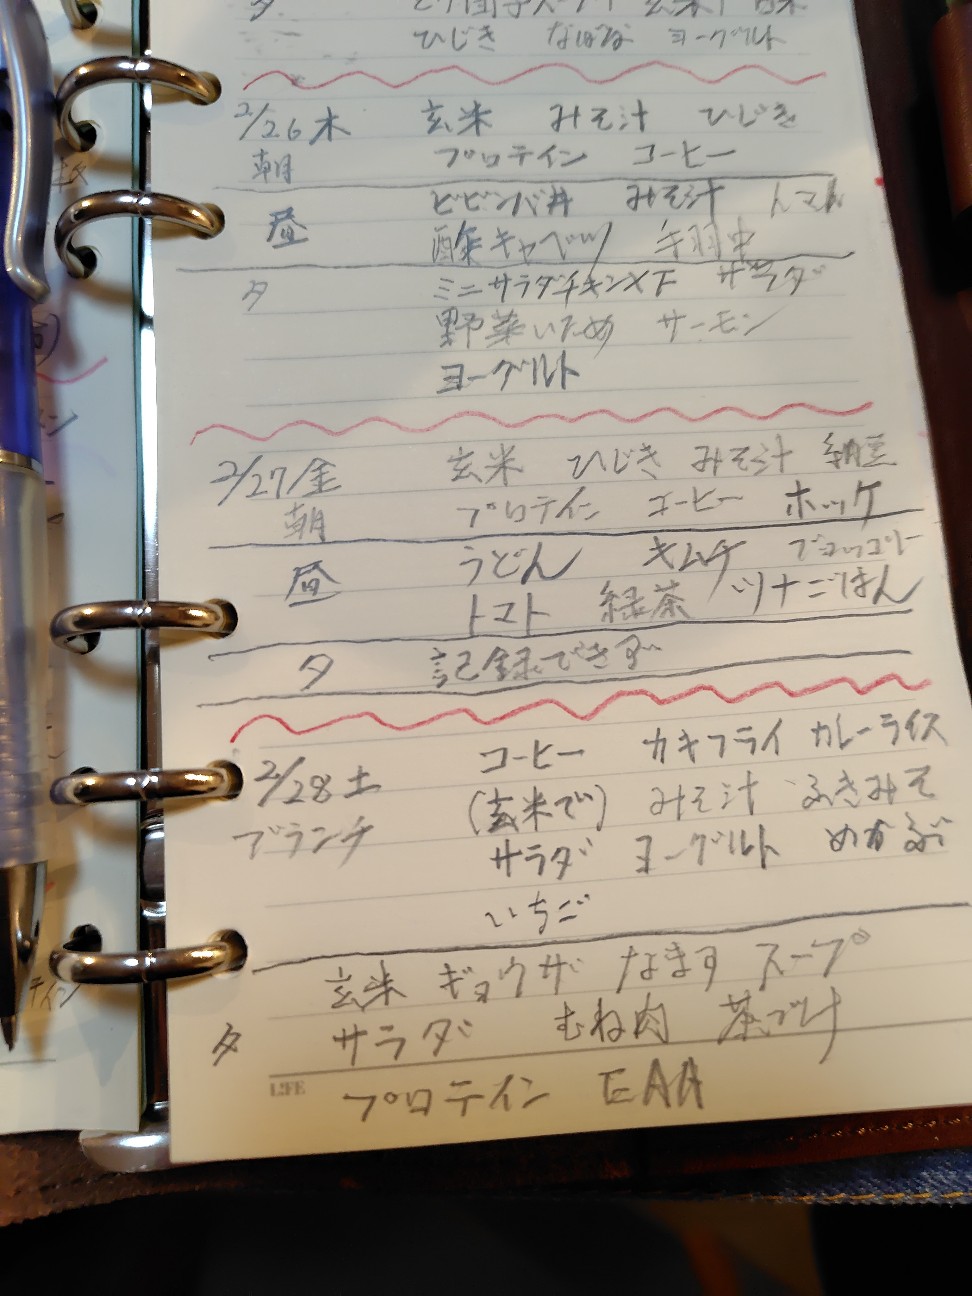 夕
ひじき なばな ヨーグルト
2/26木 玄米 みそ汁 ひじき
朝 プロテイン コーヒー
昼 ビビンバ丼 みそ汁
酢キャベツ 手羽中
夕 ミニサラダチキン サラダ
野菜いため サーモン
ヨーグルト
2/27金 玄米 ひじき みそ汁 納豆
朝 プロテイン コーヒー ホッケ
昼 うどん キムチ ブロッコリー
トマト 緑茶 ツナごはん
夕 記録できず
2/28土 コーヒー カキフライ カレーライス
(玄米で) みそ汁 ふきみそ
ブランチ サラダ ヨーグルト めかぶ
いちご
玄米 ギョウザ なます スープ
夕 サラダ むね肉 茶づけ
LIFE
プロテイン EAA